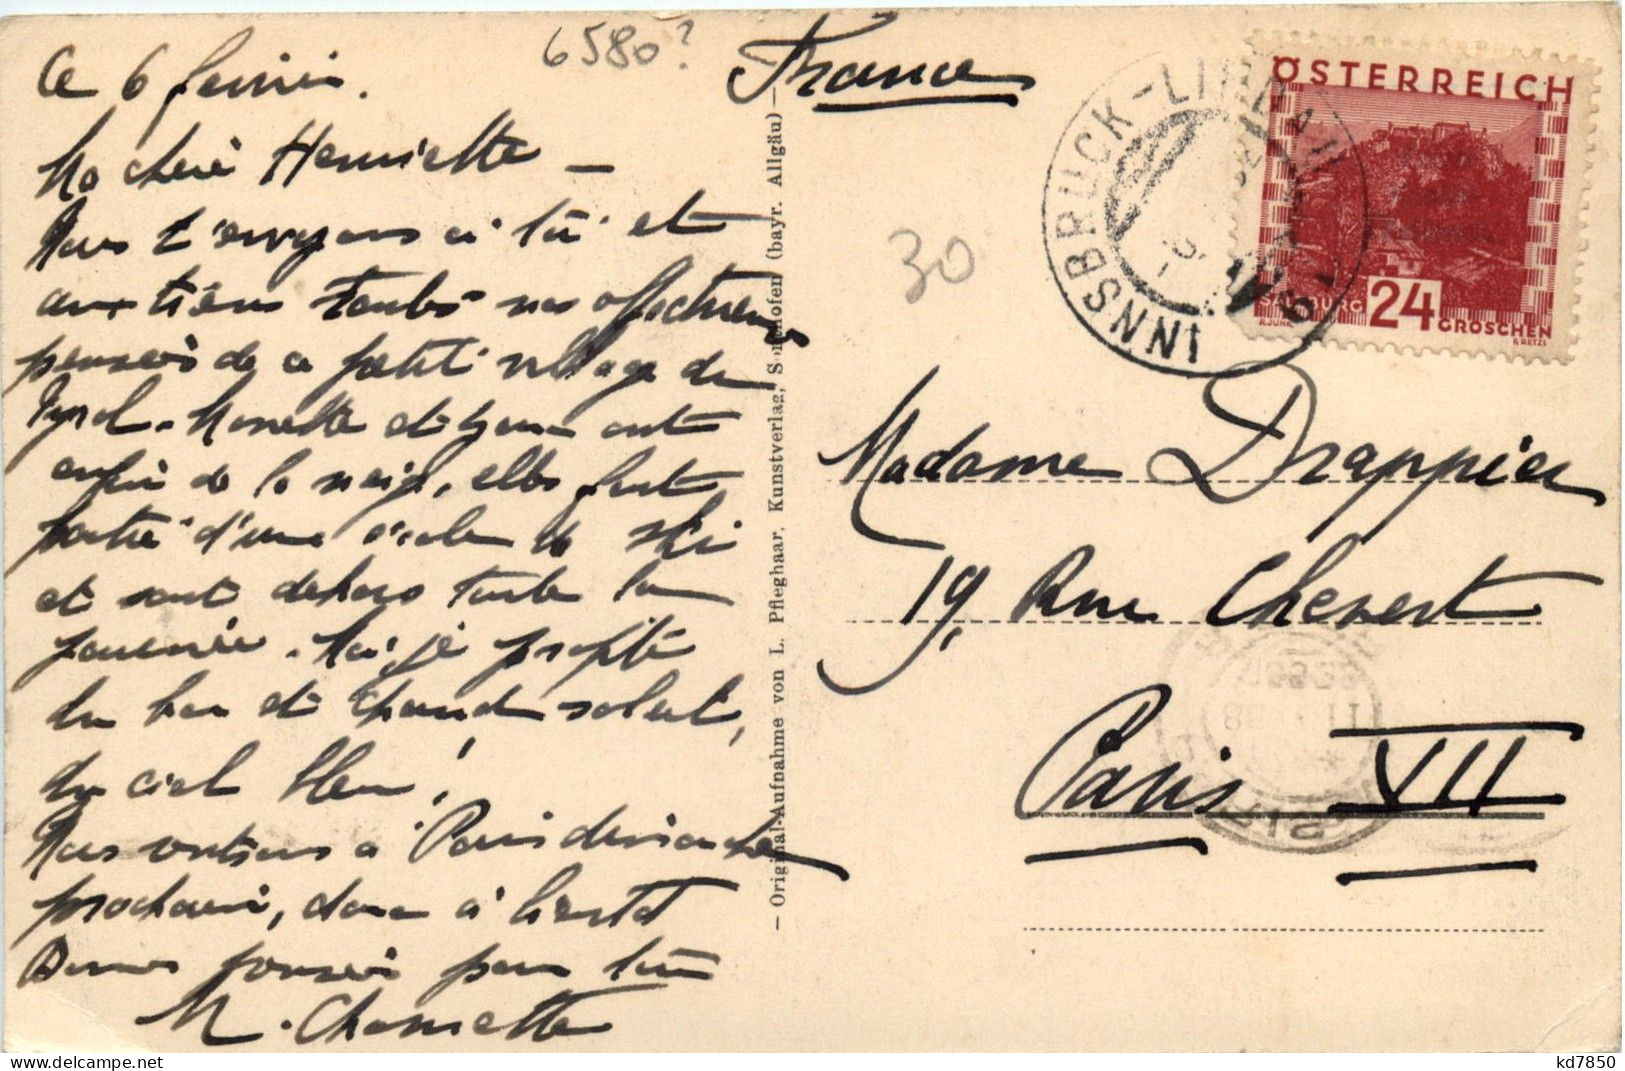 6580?
Ce 6 février.
Ma chère Henriette –
Nous t'envoyons à toi et
aux tiens toutes nos affectueuses
pensées de ce petit village du
Tyrol. Monette et ont
enfin de la neige, elles font
partie d'une école de ski
et sont dehors toute la
journée. Moi je profite
du bon et chaud soleil,
du ciel bleu!
Nous rentrons à Paris dimanche
prochain, donc à bientôt
Bonnes pensées pour toi
M. Chomette
– Original-Aufnahme von L. Pfleghaar, Kunstverlag, Sonthofen (bayr. Allgäu) –
France
30
INNSBRUCK
ÖSTERREICH
SALZBURG
24
GROSCHEN
Madame Drappier
19, Rue Chevert
Paris VII
kd7850